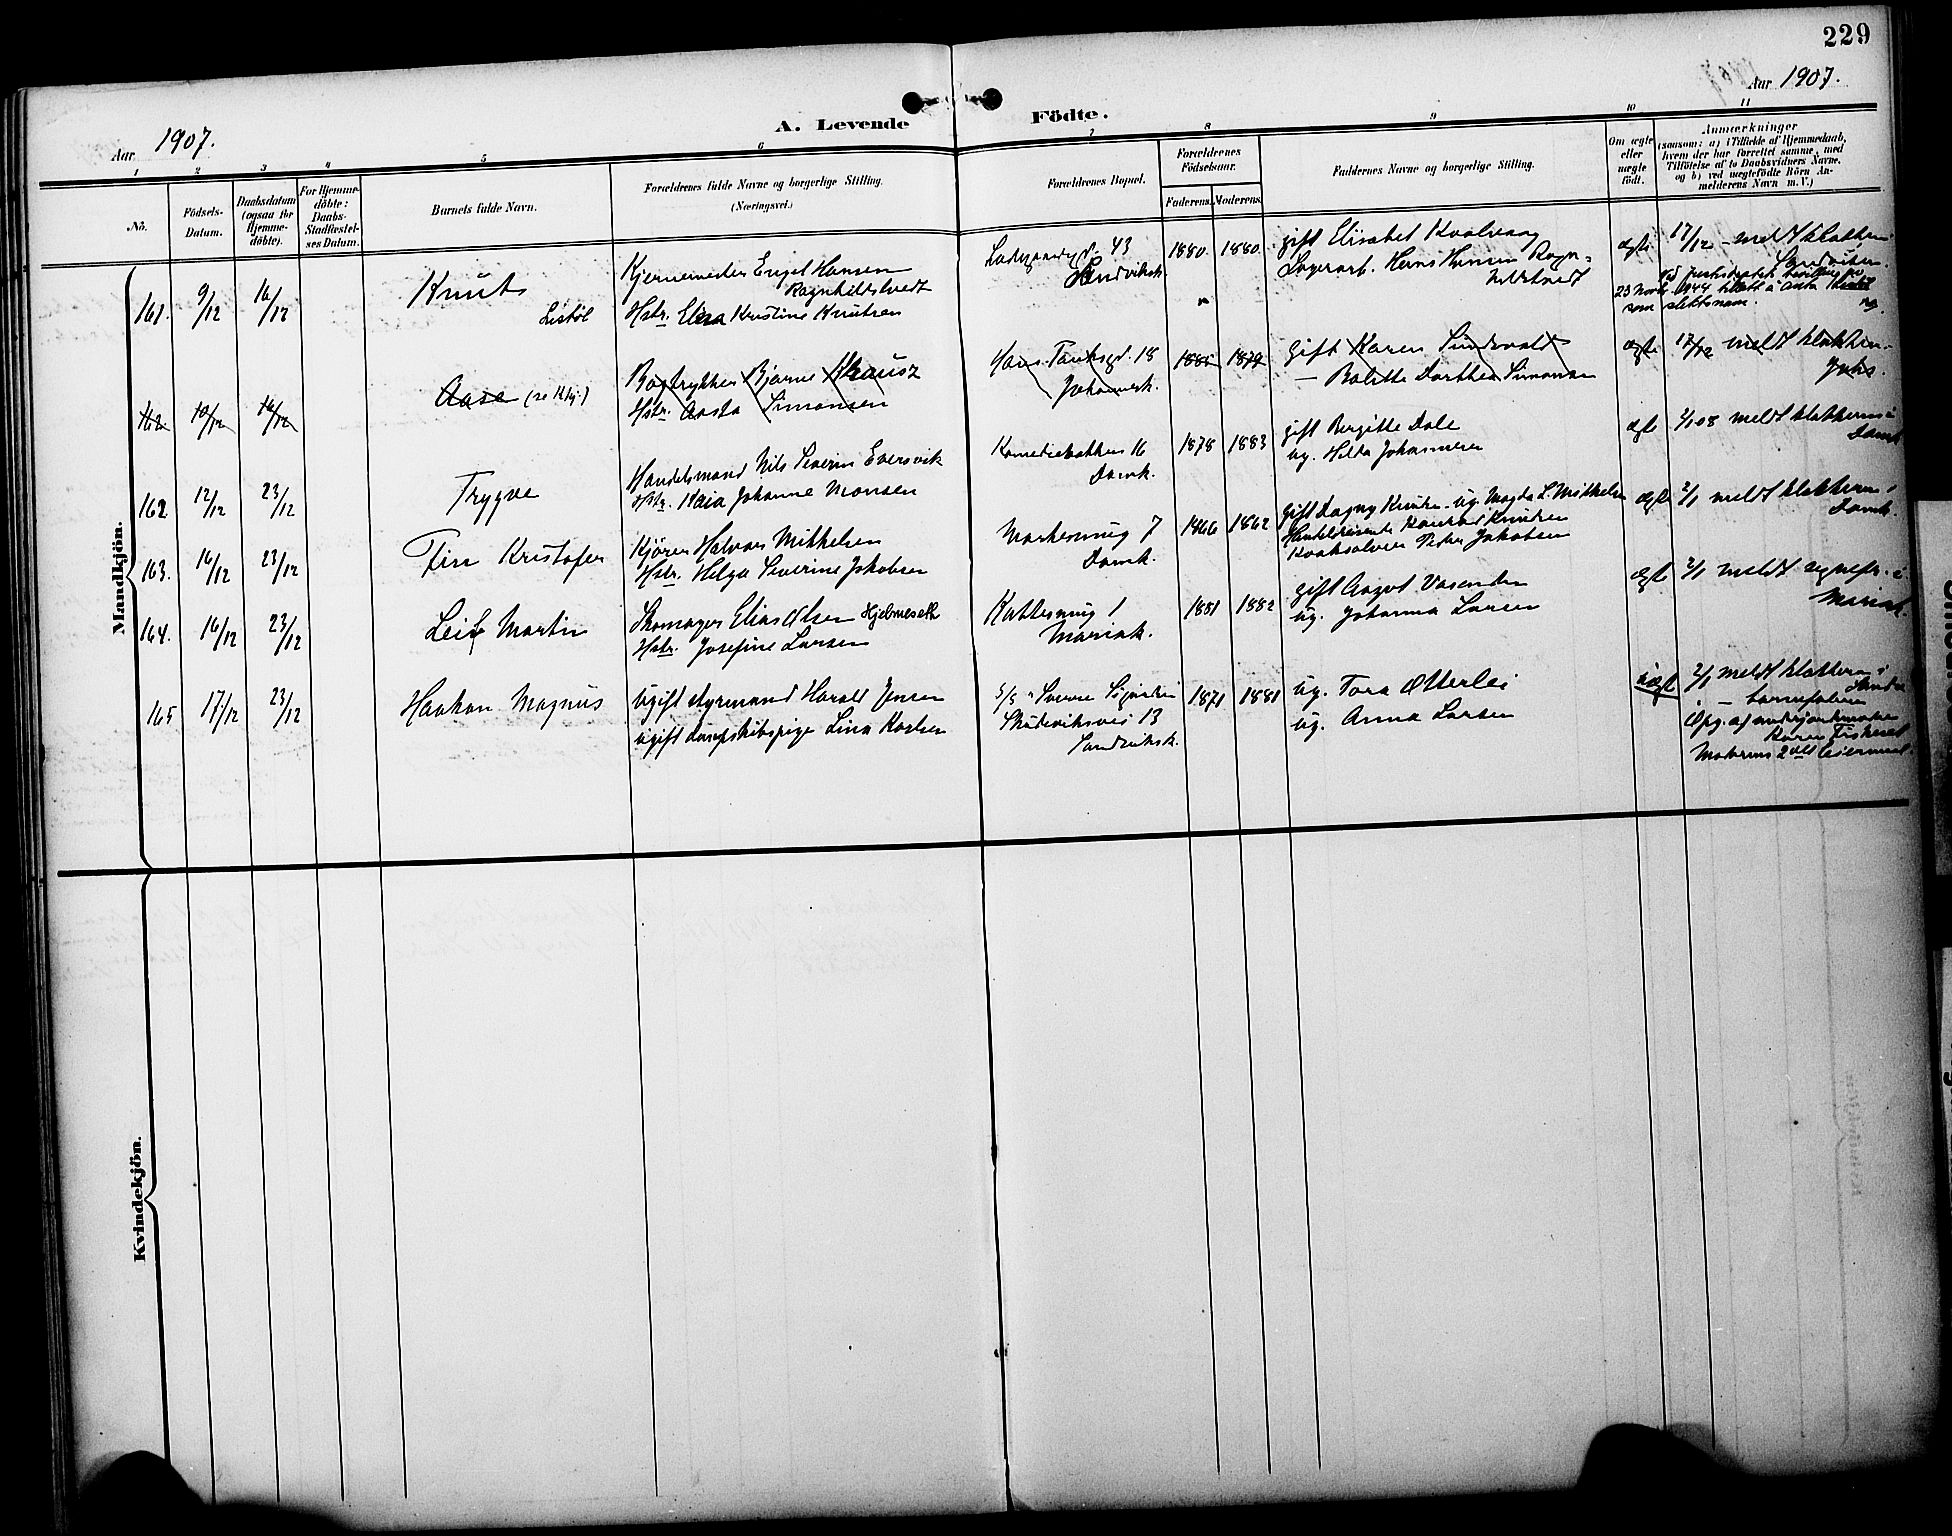 229
Aar 1907.
Aar 1907.
A. Levende Födte.
1 2 3 4 5 6 7 8 9 10 11
No.
Födsels-Datum.
Daabsdatum (ogsaa for Hjemme-döbte).
For Hjemme-döbte: Daabs-Stadfæstel-ses Datum.
Barnets fulde Navn.
Forældrenes fulde Navne og borgerlige Stilling.
(Næringsvei.)
Forældrenes Bopæl.
Forældrenes Födselsaar.
Faderens. Moderens.
Faddernes Navne og borgerlige Stilling.
Om ægte eller uægte födt.
Anmærkninger
(saasom: a) i Tilfælde af Hjemmedaab, hvem der har forrettet samme, med Tilföielse af to Daabsvidners Navne, og b) ved uægtefödte Börn Anmelderens Navn m. V.)
Mandkjön.
161. 9/12 16/12
Knut
Listöl
Engel Hansen
Ragnhildstvedt
Hstr. Kristine Knutsen
43
Sandviksk.
1880. 1880.
gift Elisabet Kvalvaag
Lagerarb. Hans Hansen Ragn-
hildstvedt
ægte
17/12 meldt klokkeren i
Sandviken.
23 Novbr. 1944
som slektsnavn.
162 10/12 16/12
Aase (se Kkj.)
Bogtrykker Bjarne Krausz
Hstr. Aasta Simonsen
Hans Tanksgd. 18
Johannesk.
1885 1879
gift Karen Sundvold
— Bolette Dorthea Simonsen
ægte
17/12 meldt klokkeren
Johs.
162 12/12 23/12
Trygve
Handelsmand Nils Severin Eversvik
Hstr. Kaia Johanne Monsen
Komediebakken 16
Domk.
1878 1883
gift Bergitte Dale
ug. Hilda Johannesen
ægte
2/1 08 meldt klokkeren i
Domk.
163. 16/12 23/12
Finn Kristofer
Kjører Halvor Mikkelsen
Hstr. Helga Severine Jakobsen
Markesmug 7
Domk.
1866 1862
gift Dagny Knudsen. ug. Magda L. Mikkelsen
Handelsreisende Konrad Knudsen
Peder Jakobsen
ægte
2/1 meldt klokkeren i
Domk.
164. 16/12 23/12
Leif Martin
Skomager Elias Olsen Hjelmeseth
Hstr. Josefine Larsen
Kattesmug 1
Mariak.
1881 1882
gift Aagot Vasenden
ug. Johanna Larsen
ægte
2/1 meldt sognepr. i
Mariak.
165 17/12 23/12
Haakon Magnus
Ugift styrmand Harald Jensen
ugift dampskibspige Lina Karlsen
Skuteviksvei 13
Sandviksk.
1871 1881
ug. Tora Otterlei
ug. Anna Larsen
uægte
2/1 meldt klokkeren i
Opg. af underjordemoder
Karen
Moderens 2det leiermaal.
Kvindekjön.